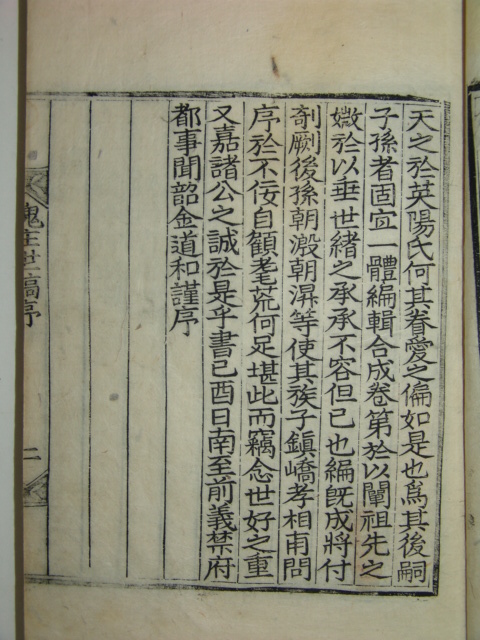 天之於英陽氏何其眷愛之偏如是也爲其後嗣
子孫者固宜一體編輯合成卷第於以闡祖先之
媺於以垂世緖之承承不容但已也編旣成將付
剞劂後孫朝濲朝濎等使其族子鎭嶠孝相甫問
序於不佞自顧耄荒何足堪此而竊念世好之重
又嘉諸公之誠於是乎書己酉日南至前義禁府
都事聞韶金道和謹序
槐庄世稿序
二